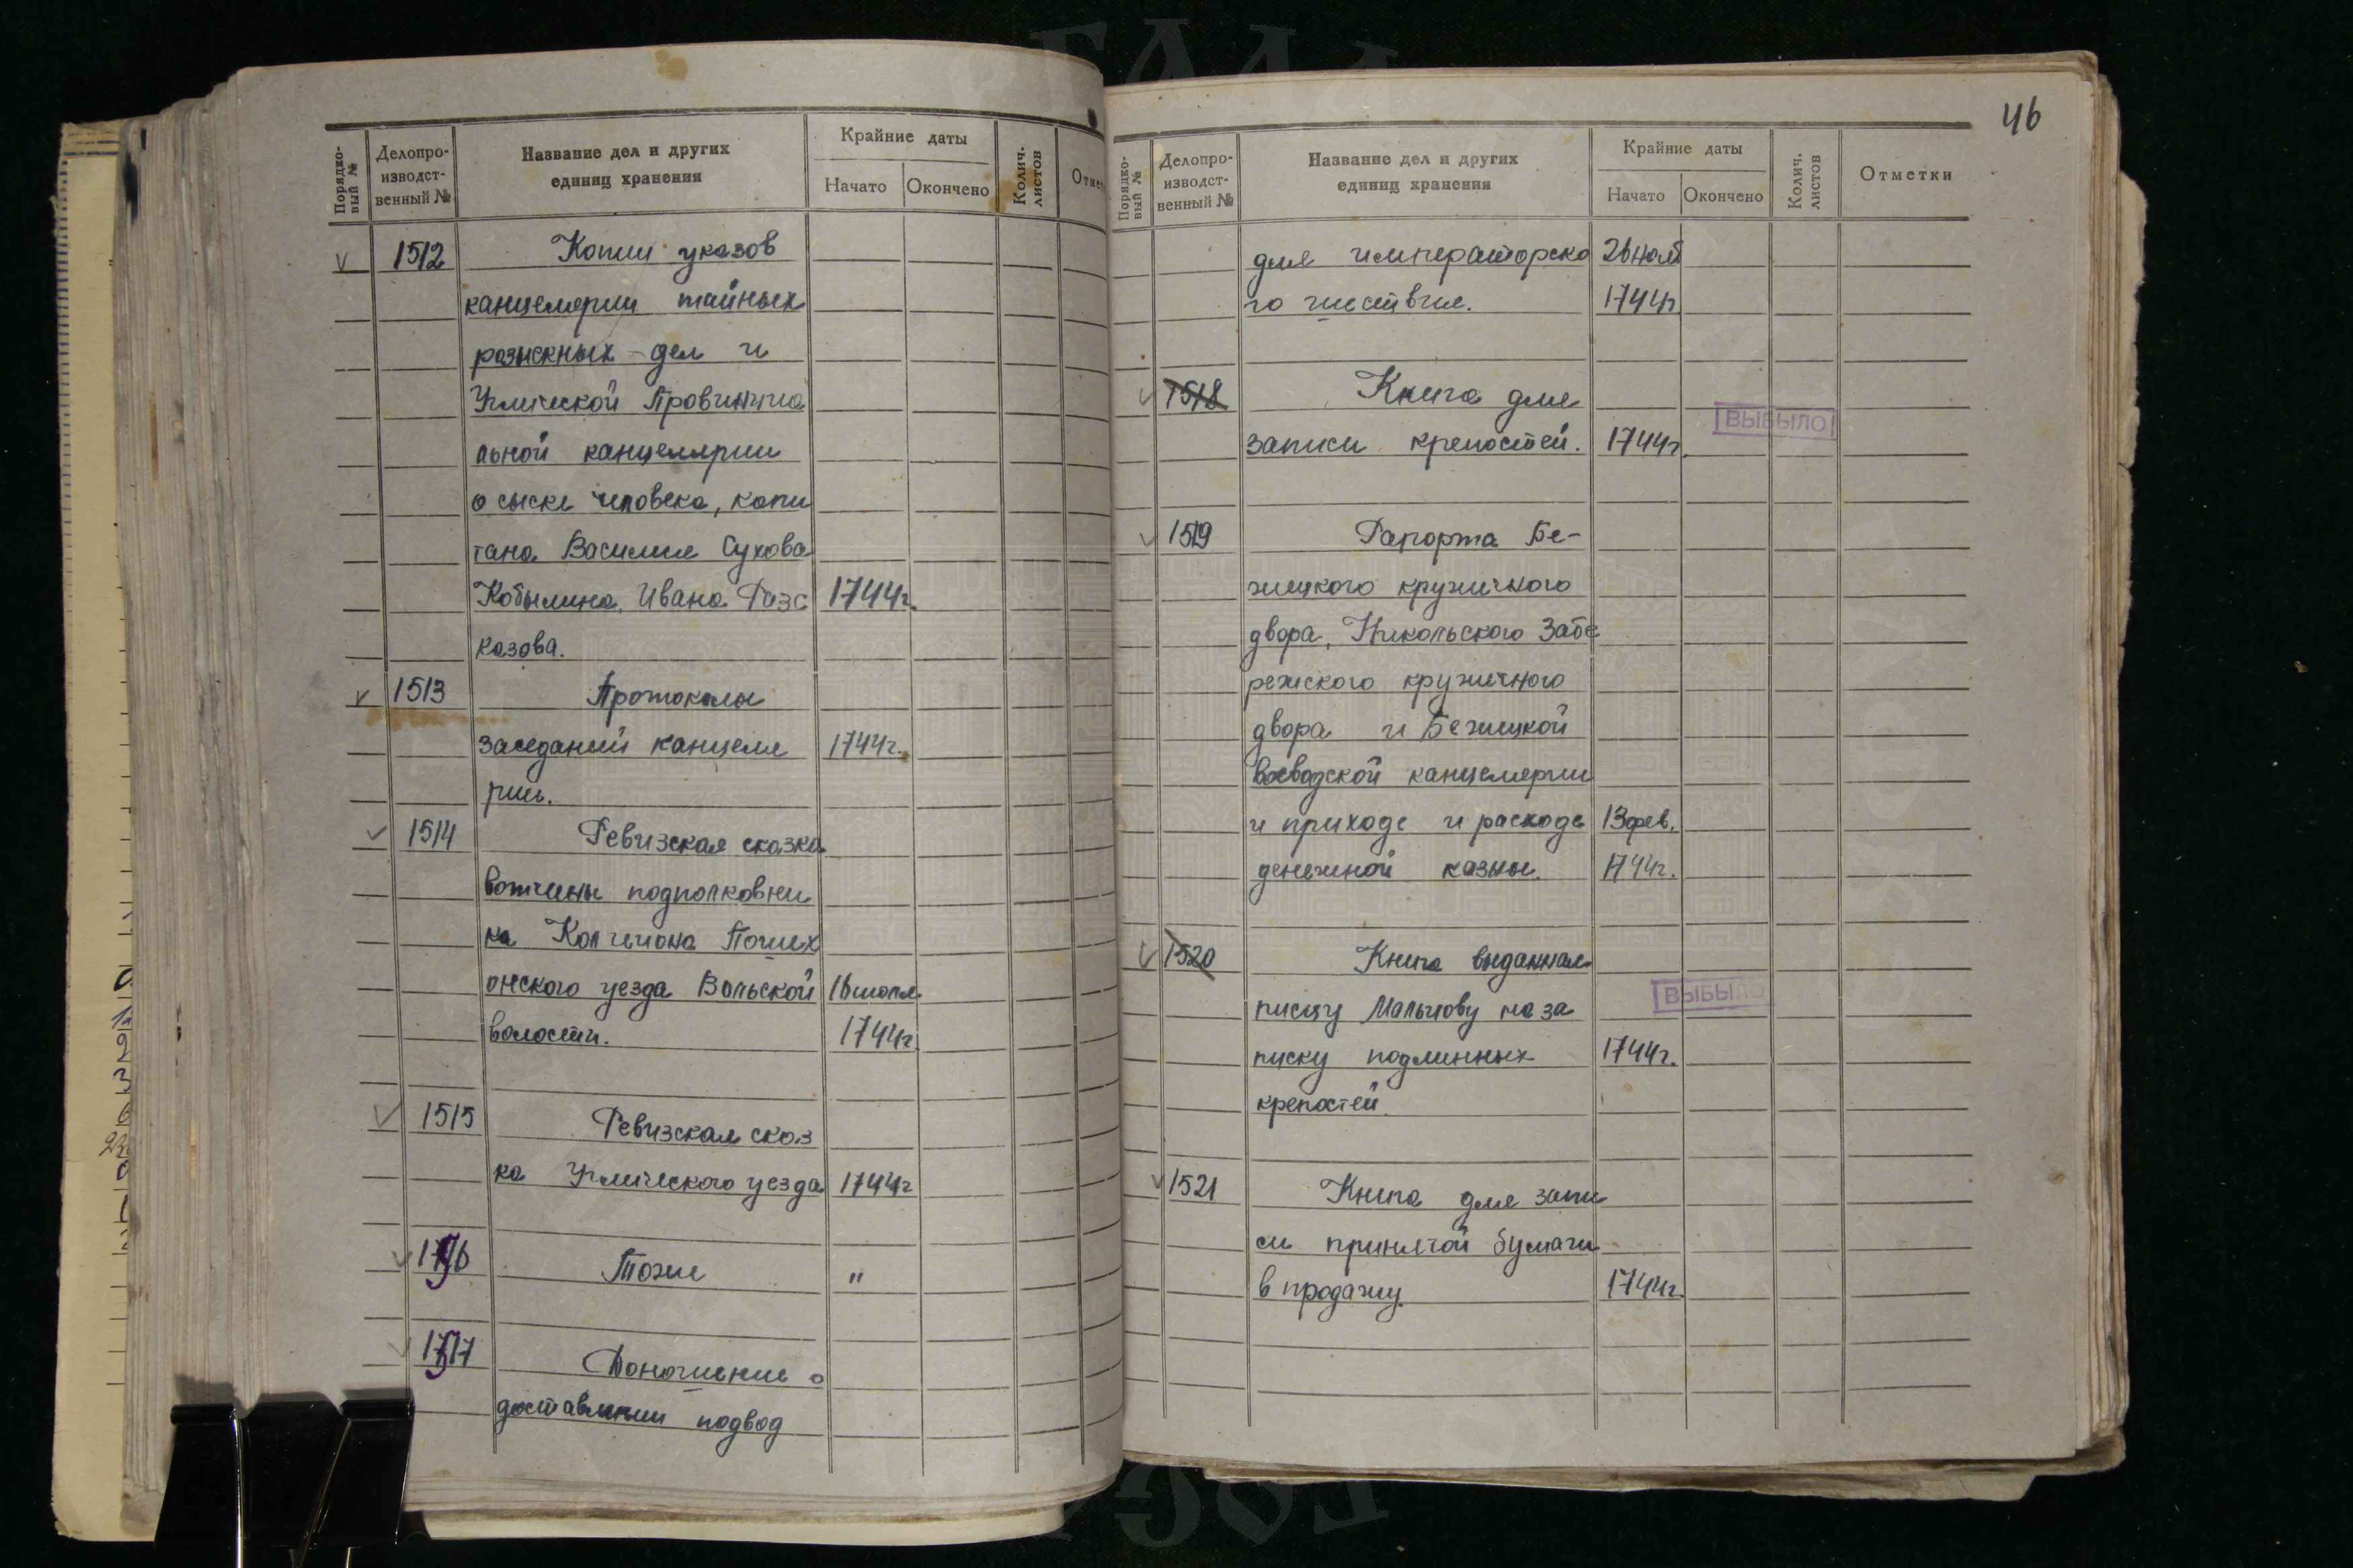 Порядко-
вый №
Делопро-
изводст-
венный №
Название дел и других
единиц хранения
Крайние даты
Начато
Окончено
Колич.
листов
Отмет
1512
Копии указов
канцелярии тайных
розыскных дел и
Угличской Провинциа
льной канцелярии
о сыске человека, капи
тана Василия Сухова
Кобылина, Ивана Расс 1744г.
казова.
1513
Протоколы
заседаний канцеля 1744г.
рии.
1514
Ревизская сказка
вотчины подполковни
ка
Пошех
онского уезда Вольской 16 июля
волости. 1744г.
1515
Ревизская сказ
ка Угличского уезда 1744г
1516
Тоже "
1517
Доношение о
доставлении подвод
46
Порядко-
вый №
Делопро-
изводст-
венный №
Название дел и других
единиц хранения
Крайние даты
Начато
Окончено
Колич.
листов
Отметки
для императорско 26 нояб
го шествия. 1744г
1518
Книга для
ВЫБЫЛО
записи крепостей. 1744г.
1519
Рапорта Бе-
жицкого кружечного
двора, Никольского Забе
режского кружечного
двора и Бежицкой
воеводской канцелярии
и приходе и расходе 13 фев.
денежной казны. 1744г.
1520
Книга выданная
ВЫБЫЛО
писцу Мальцову на за
писку подлинных 1744г.
крепостей.
1521
Книга для запи
си принятой бумаги
в продажу. 1744г.